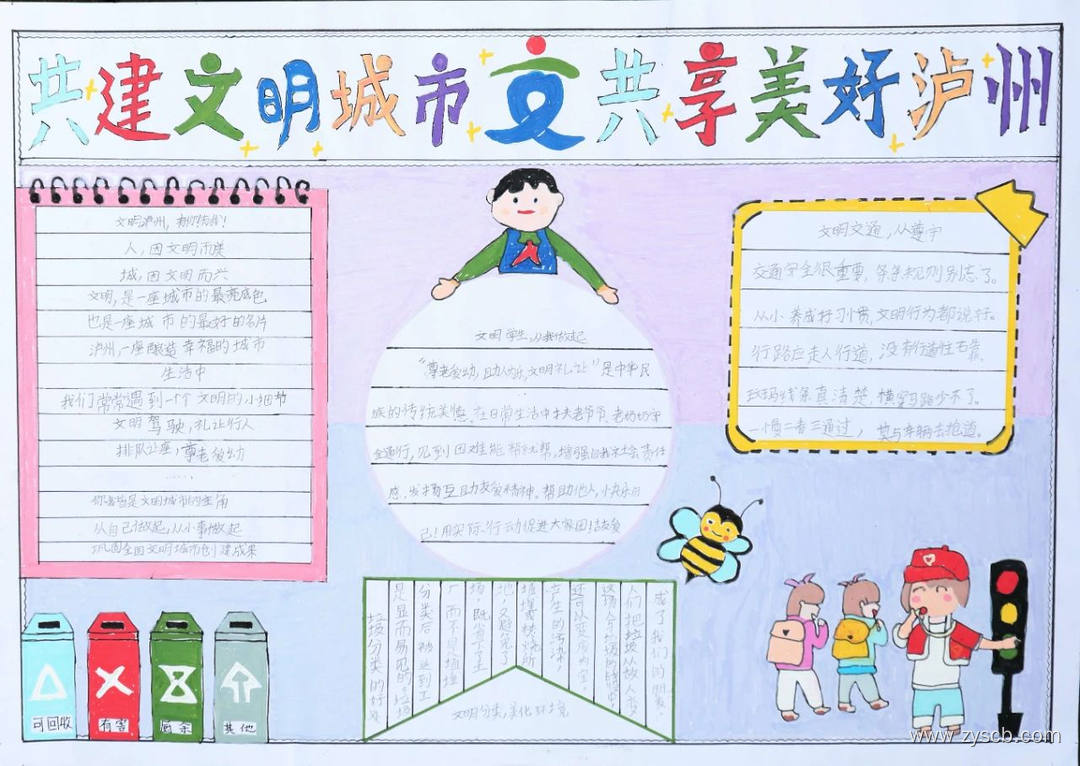 共建文明城市 文 共享美好泸州
文明泸州，有你有我！
人，因文明而美
城，因文明而兴
文明，是一座城市的最亮底色
也是一座城市的最好的名片
泸州，一座酿造幸福的城市
生活中
我们常常遇到一个文明的小细节
文明驾驶，礼让行人
排队让座，尊老爱幼
……
你我皆是文明城市的主角
从自己做起，从小事做起
巩固全国文明城市创建成果
文明学生，从我做起
“尊老爱幼，助人为乐，文明礼让”是中华民
族的传统美德。在日常生活中扶老爷爷、老奶奶
全通行，见到困难能帮就帮，增强自我社会责任
感，发扬互助友爱精神。帮助他人，快乐自
己！用实际行动促进大家团结友爱
文明交通，从遵守
交通安全很重要，条条规则别忘了。
从小养成好习惯，文明行为都说好。
行路应走人行道，没有行道往右靠。
斑马线条真清楚，横穿马路少不了。
一慢二看三通过，莫与车辆去抢道。
垃圾分类的好处
是显而易见的。垃圾
分类后被送到工
厂而不是填埋
场，既省下了土
地，又避免了
填埋焚烧所
产生的污染，
还可以变废为宝。
人们把垃圾从敌人变
成了我们的朋友。
文明分类，美化环境
可回收
有害
厨余
其他
www.zyscb.com